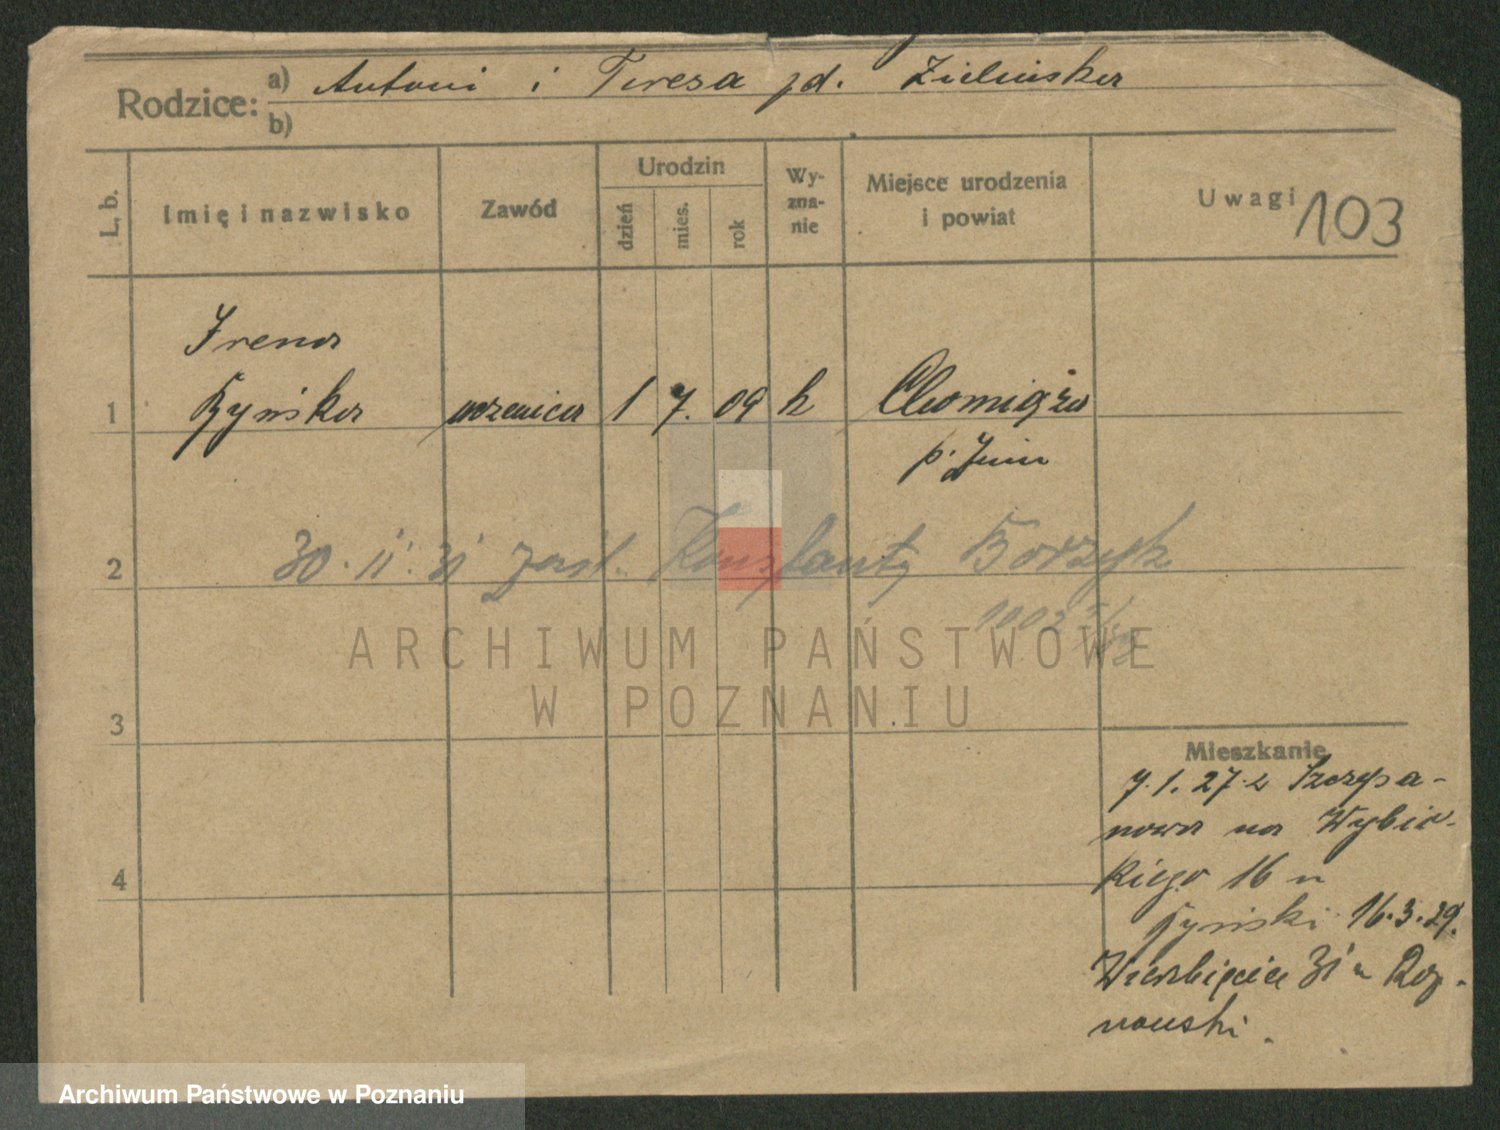 Rodzice:
a) Antoni i Teresa zd. Zielińska
b)
L. b.
Imię i nazwisko
Zawód
Urodzin
dzień
mies.
rok
Wy-
zna-
nie
Miejsce urodzenia
i powiat
Uwagi
103
Irena
1 Ryńska uczenica 1 7. 09 k Chomiąża
p. Żnin
2 30. 11. 31 zaśl. Konstanty Borzyk
3
4
Mieszkanie
7.1.27 z Szczepa-
nowa na Wybic-
kiego 16 u
Ryński 16.3.29.
Wierzbięcice 31 u Roz-
nowski.
ARCHIWUM PAŃSTWOWE
W POZNANIU
Archiwum Państwowe w Poznaniu